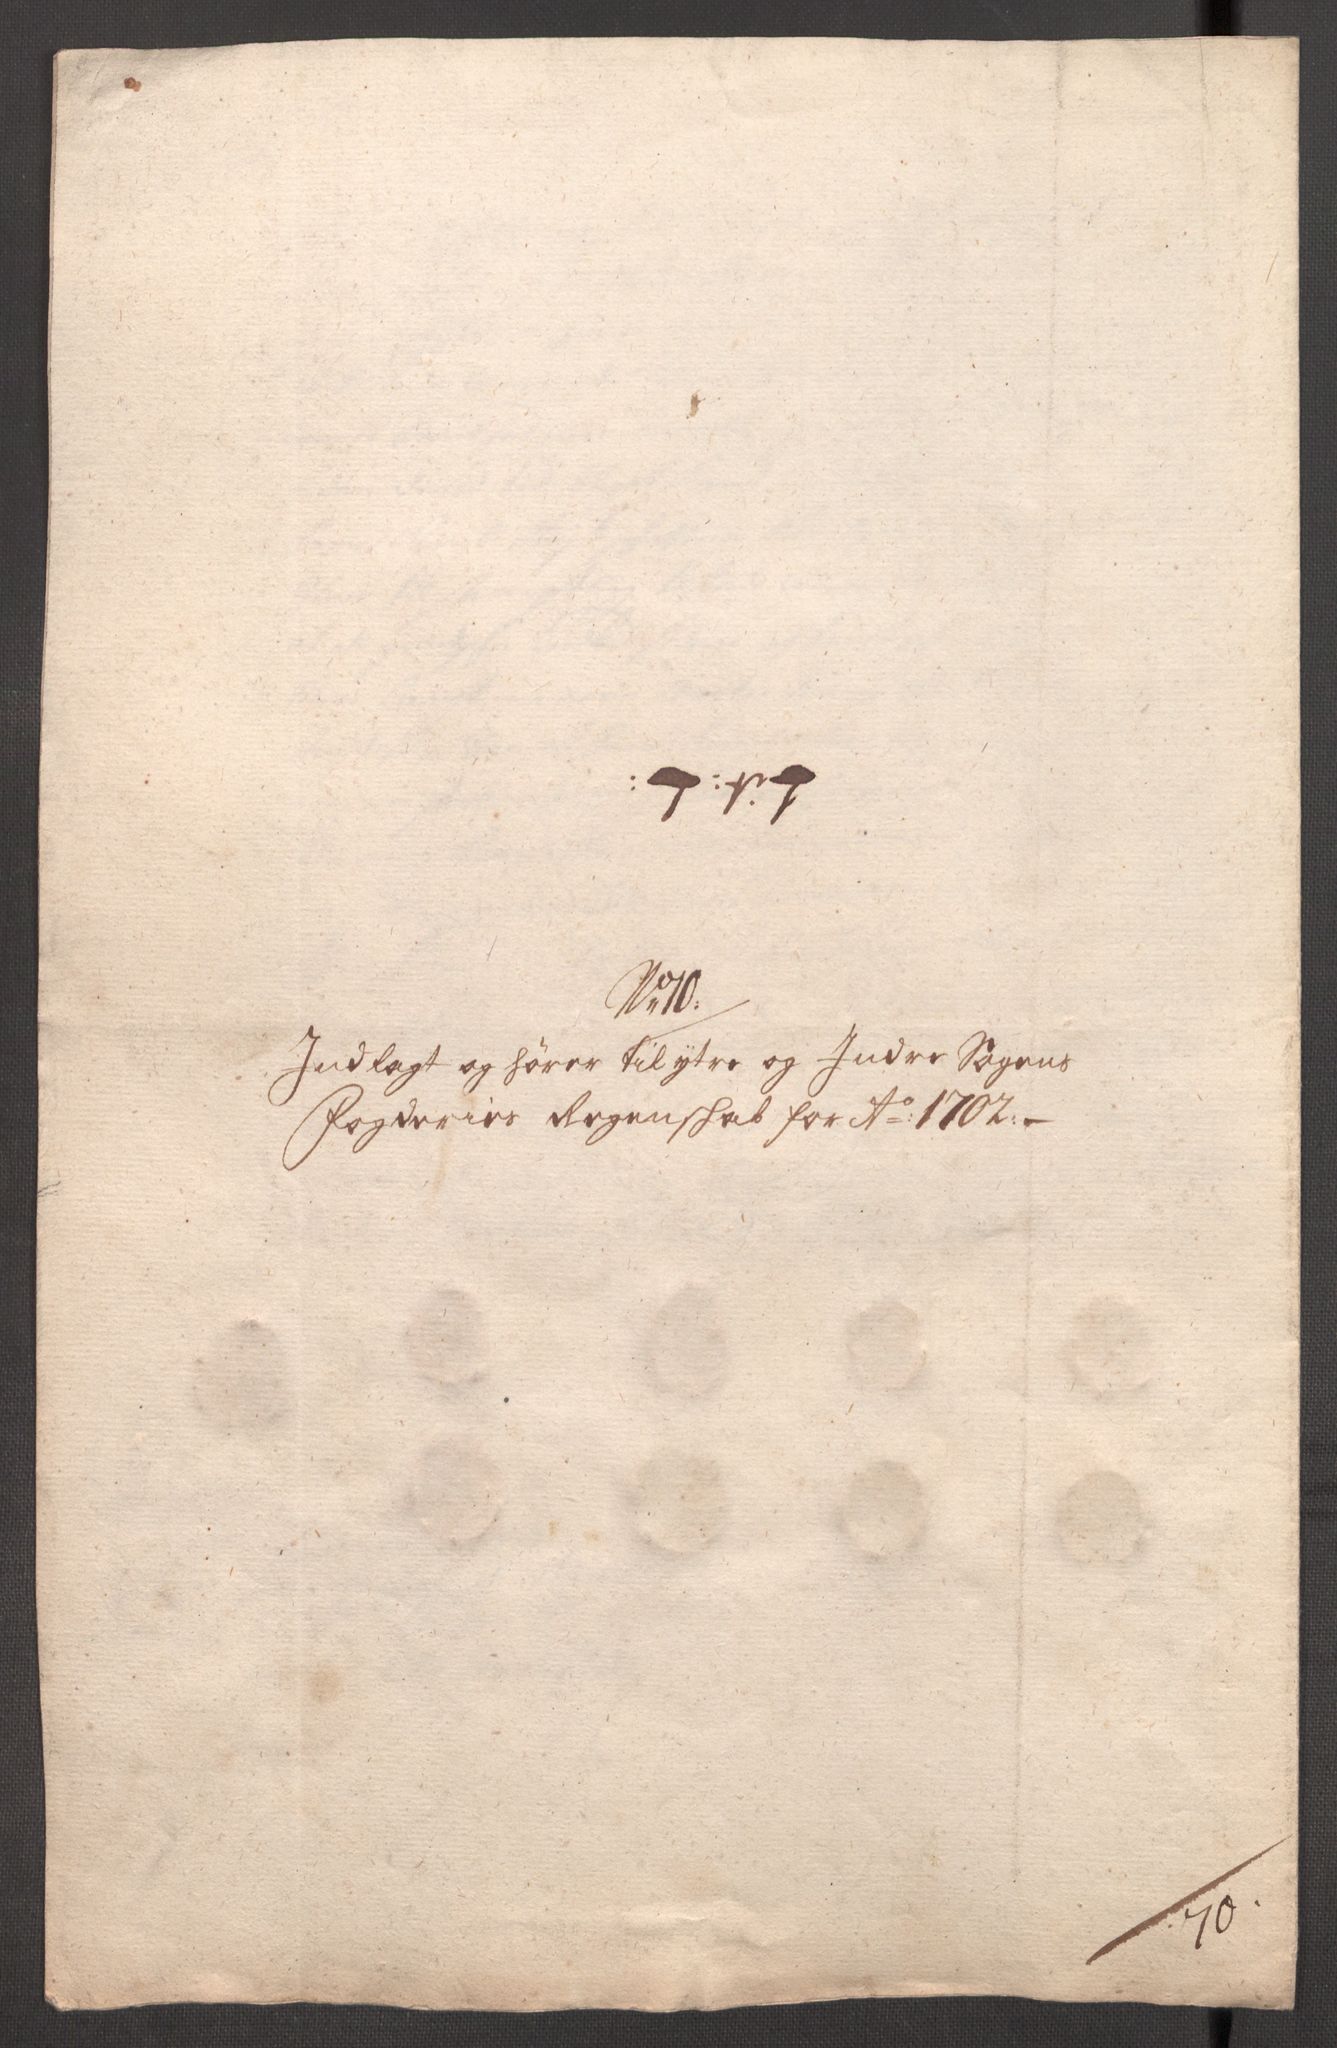 No 70.
Indlagt og hører til ytre og Indre Sogens
Fogderies Regenschab for Ao: 1702:-
70.